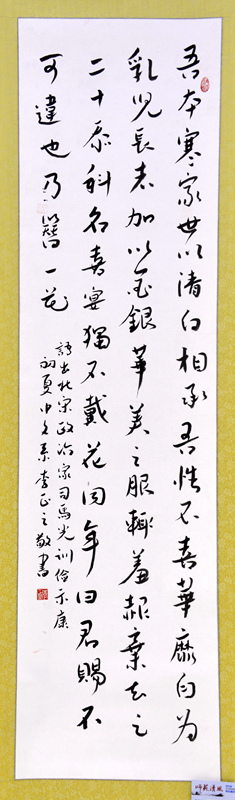 吾本寒家世以清白相承吾性不喜華靡自为
乳児長者加以金銀華美之服輒羞赧棄去之
二十忝科名喜宴獨不戴花同年曰君賜不
可違也乃簪一花
語出北宋政治家司馬光訓儉示康
初夏中文系李正之敬書